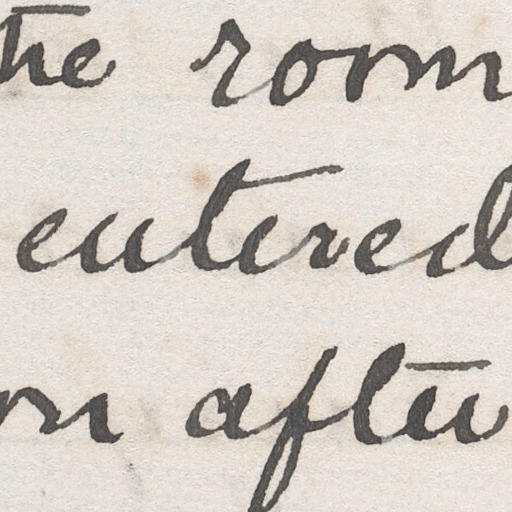 the room
entered
on after